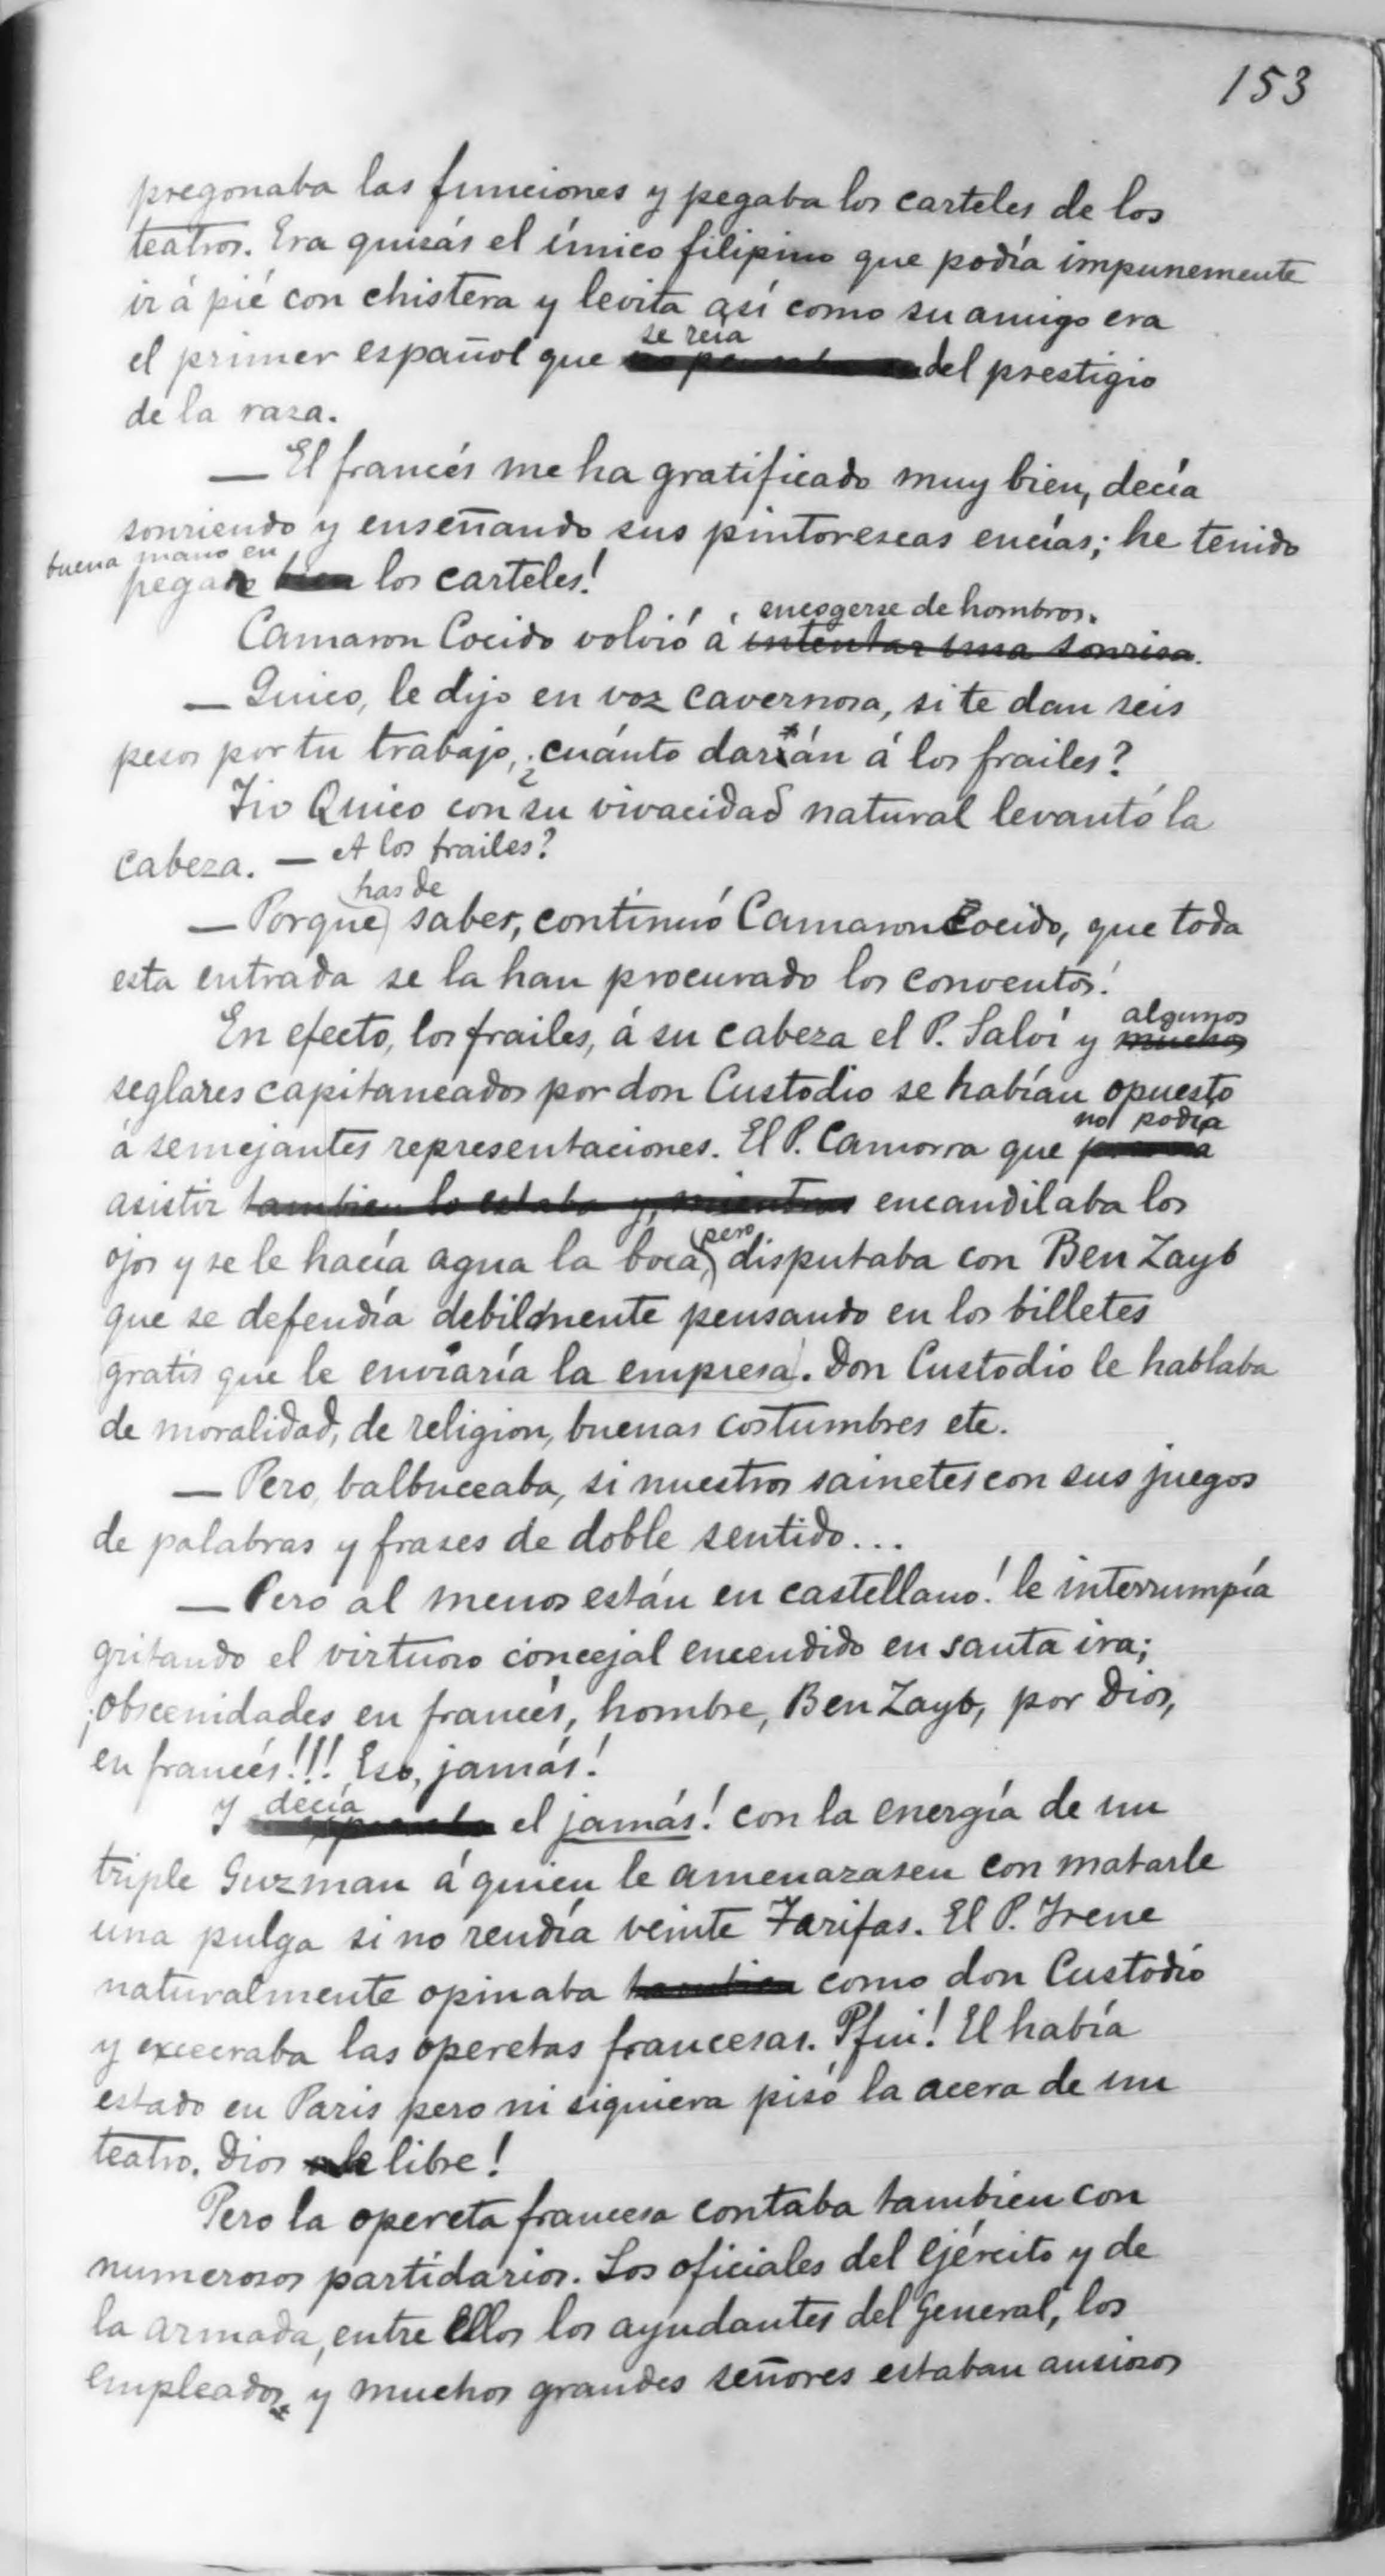 153
pregonaba las funciones y pegaba los carteles de los
teatros. Era quizás el único filipino que podía impunemente
ir á pié con chistera y levita así como su amigo era
se reia
el primer español que del prestigio
de la raza.
— El francés me ha gratificado muy bien, decía
sonriendo y enseñando sus pintorescas encías; he tenido
buena mano en
pegar bien los carteles!
encogerse de hombros.
Camaron Cocido volvió á intentar una sonrisa.
— Quico, le dijo en voz cavernosa, si te dan seis
pesos por tu trabajo, ¿cuánto darán á los frailes?
Tio Quico con su vivacidad natural levantó la
cabeza. — A los frailes?
has de
— Porque saber, continuó Camaron Cocido, que toda
esta entrada se la han procurado los conventos!
algunos
En efecto, los frailes, á su cabeza el P. Salví y muchos
seglares capitaneados por don Custodio se habían opuesto
no podía
á semejantes representaciones. El P. Camorra que
asistir tambien lo estaba y, mientras encandilaba los
pero
ojos y se le hacía agua la boca, disputaba con Ben Zayb
que se defendía debilmente pensando en los billetes
gratis que le enviaría la empresa. Don Custodio le hablaba
de moralidad, de religion, buenas costumbres etc.
— Pero, balbuceaba, si nuestros sainetes con sus juegos
de palabras y frases de doble sentido...
— Pero al menos están en castellano! le interrumpía
gritando el virtuoso concejal encendido en santa ira;
¡obscenidades en francés, hombre, Ben Zayb, por Dios,
en francés!!! Eso, jamás!
decía
Y el jamás! con la energía de un
triple Guzman á quien le amenazasen con matarle
una pulga si no rendía veinte Tarifas. El P. Irene
naturalmente opinaba tambien como don Custodio
y execraba las operetas francesas. Pfui! El había
estado en Paris pero ni siquiera pisó la acera de un
teatro. Dios le libre!
Pero la opereta francesa contaba tambien con
numerosos partidarios. Los oficiales del Ejército y de
la armada, entre ellos los ayudantes del General, los
empleados y muchos grandes señores estaban ansiosos